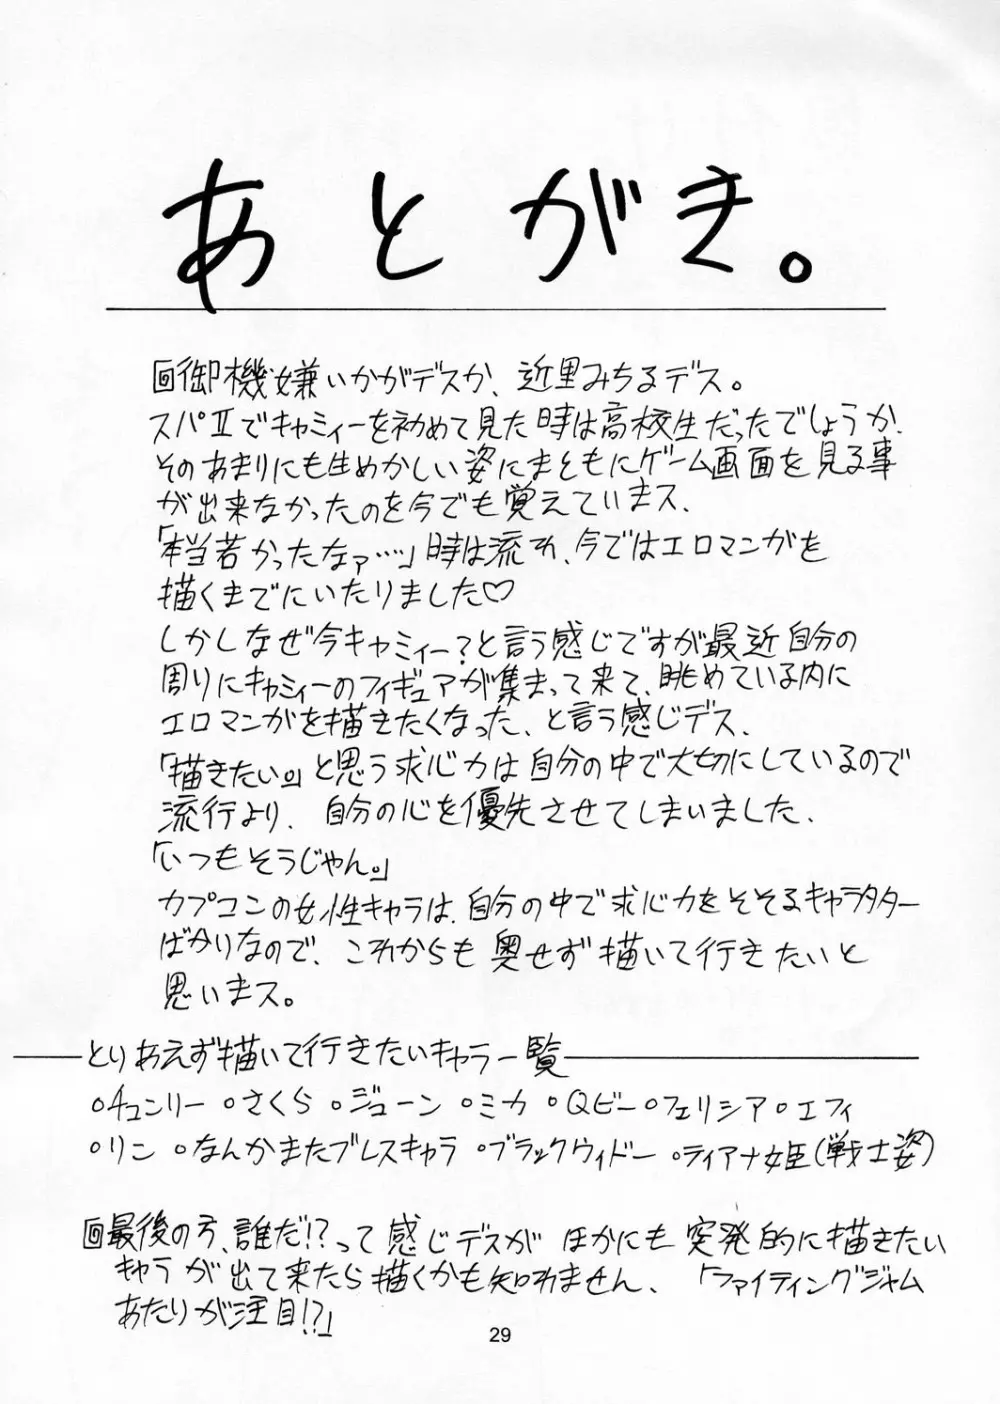 あとがき。
回御機嫌いかがデスか、近里みちるデス。
スパⅡでキャミィーを初めて見た時は高校生だったでしょうか、
そのあまりにも生めかしい姿にまともにゲーム画面を見る事
が出来なかったのを今でも覚えていまス、
「本当若かったなァ…」時は流れ、今ではエロマンガを
描くまでにいたりました♡
しかしなぜ今キャミィー?と言う感じですが最近自分の
周りにキャミィーのフィギュアが集まって来て、眺めている内に
エロマンガを描きたくなった、と言う感じデス、
「描きたい。」と思う求心力は自分の中で大切にしているので
流行より、自分の心を優先させてしまいました、
「いつもそうじゃん。」
カプコンの女性キャラは、自分の中で求心力をそそるキャラタクター
ばかりなので、これからも臭せず描いて行きたいと
思いまス。
とりあえず描いて行きたいキャラ一覧
○チュンリー ○さくら ○ジューン ○ミカ ○Qビー ○フェリシア ○エフィ
○リン ○なんかまたブレスキャラ ○ブラックウィドー ○ティアナ姫(戦士姿)
回最後の方、誰だ!?って感じデスがほかにも突発的に描きたい
キャラが出て来たら描くかも知れません、「ファイティングジャム
あたりが注目!?」
29